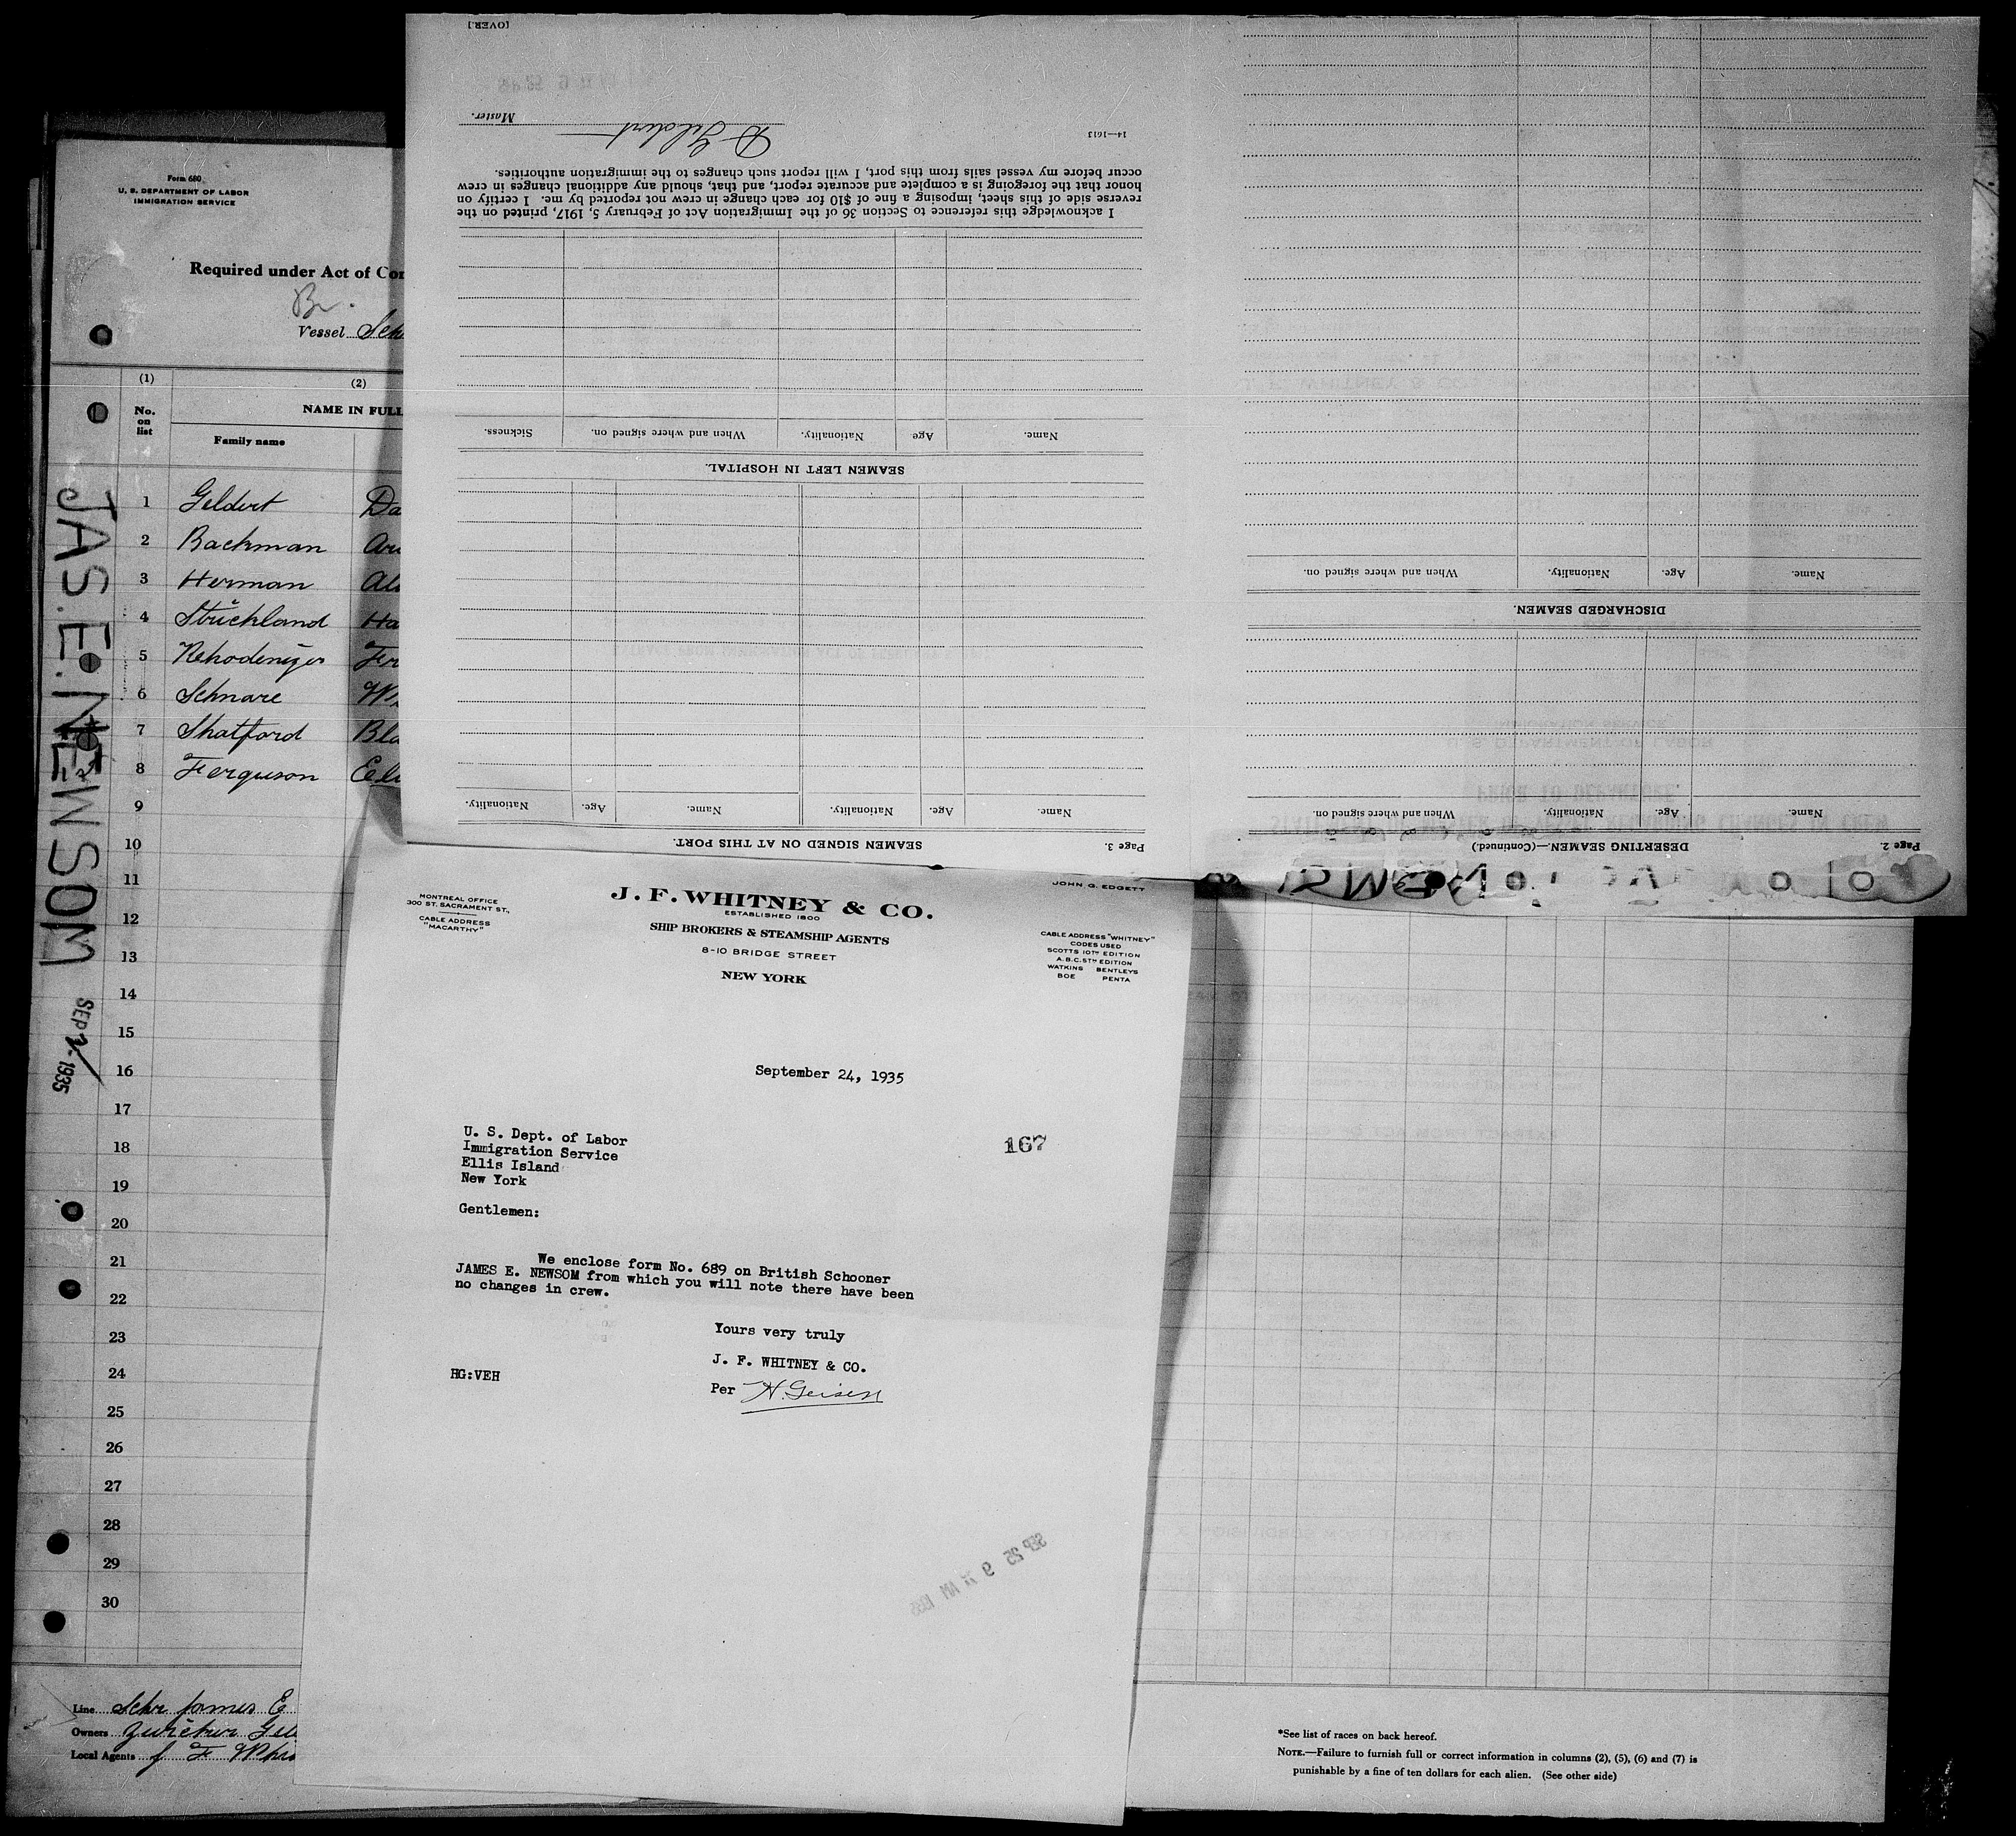 Form 680
U. S. DEPARTMENT OF LABOR
IMMIGRATION SERVICE
Required under Act of Con
Br.
Vessel Sch
(1)
(2)
No. on list
NAME IN FULL
Family name
1 Geldert Da
2 Backman
3 Herman
4 Strickland Ha
5
6 Schnare
7 Shatford Bla
8 Ferguson
9
10
11
12
13
14
15
16
17
18
19
20
21
22
23
24
25
26
27
28
29
30
JAS. E. NEWSOM
SEP 1935
Line Schr James E
Owners
Local Agents J F Whi
[OVER.]
14—1613
D Geldert
Master.
I acknowledge this reference to Section 36 of the Immigration Act of February 5, 1917, printed on the
reverse side of this sheet, imposing a fine of $10 for each change in crew not reported by me. I certify on
honor that the foregoing is a complete and accurate report, and that, should any additional changes in crew
occur before my vessel sails from this port, I will report such changes to the immigration authorities.
Name. Age Nationality. When and where signed on. Sickness.
SEAMEN LEFT IN HOSPITAL.
Name. Age. Nationality. Name. Age. Nationality.
Page 3. SEAMEN SIGNED ON AT THIS PORT.
Name. Age. Nationality. When and where signed on.
DISCHARGED SEAMEN.
Name. Age. Nationality. When and where signed on.
Page 2. DESERTING SEAMEN.—(Continued.)
MONTREAL OFFICE
300 ST. SACRAMENT ST.,
CABLE ADDRESS
"MACARTHY"
J. F. WHITNEY & CO.
ESTABLISHED 1800
SHIP BROKERS & STEAMSHIP AGENTS
8-10 BRIDGE STREET
NEW YORK
JOHN G. EDGETT
CABLE ADDRESS "WHITNEY"
CODES USED
SCOTTS 10TH EDITION
A.B.C. 5TH EDITION
WATKINS BENTLEYS
BOE PENTA
September 24, 1935
167
U. S. Dept. of Labor
Immigration Service
Ellis Island
New York
Gentlemen:
We enclose form No. 689 on British Schooner
JAMES E. NEWSOM from which you will note there have been
no changes in crew.
Yours very truly
J. F. WHITNEY & CO.
HG:VEH
Per H. Geisen
SEP 25 9 AM
*See list of races on back hereof.
NOTE.—Failure to furnish full or correct information in columns (2), (5), (6) and (7) is
punishable by a fine of ten dollars for each alien. (See other side)